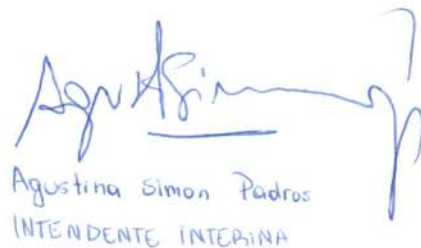 Agustina Simon Padros
INTENDENTE INTERINA